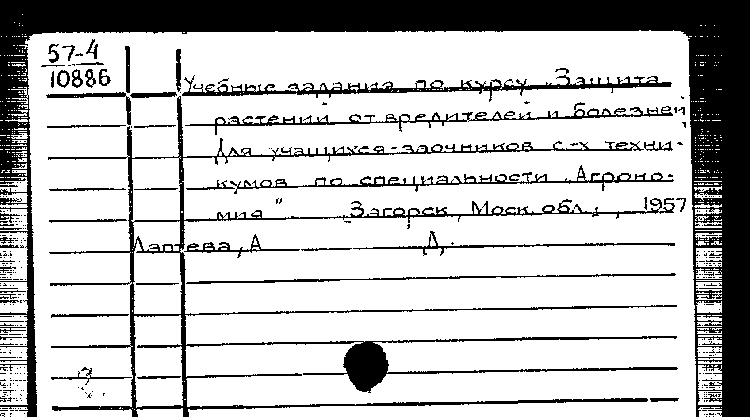 57-4
10886
Учебные задания по курсу „Защита
растений от вредителей и болезней"
Для учащихся-заочников с.-х техни-
кумов по специальности „Агроно-
мия". Загорск, Моск. обл., , 1957
Лаптева, А Д.